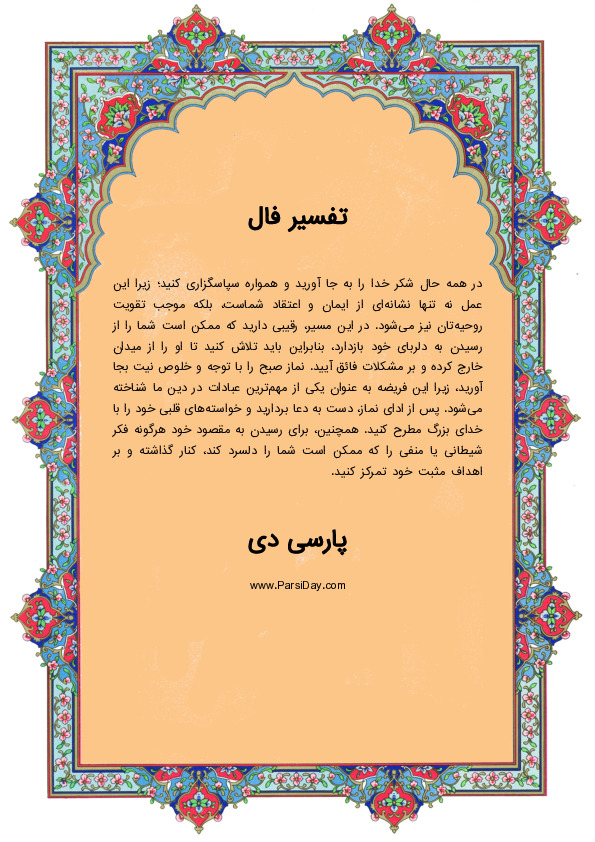 تفسیر فال
در همه حال شکر خدا را به جا آورید و همواره سپاسگزاری کنید؛ زیرا این
عمل نه تنها نشانه‌ای از ایمان و اعتقاد شماست، بلکه موجب تقویت
روحیه‌تان نیز می‌شود. در این مسیر، رقیبی دارید که ممکن است شما را از
رسیدن به دلربای خود بازدارد، بنابراین باید تلاش کنید تا او را از میدان
خارج کرده و بر مشکلات فائق آیید. نماز صبح را با توجه و خلوص نیت بجا
آورید، زیرا این فریضه به عنوان یکی از مهم‌ترین عبادات در دین ما شناخته
می‌شود. پس از ادای نماز، دست به دعا بردارید و خواسته‌های قلبی خود را با
خدای بزرگ مطرح کنید. همچنین، برای رسیدن به مقصود خود هرگونه فکر
شیطانی یا منفی را که ممکن است شما را دلسرد کند، کنار گذاشته و بر
اهداف مثبت خود تمرکز کنید.
پارسی دی
www.ParsiDay.com